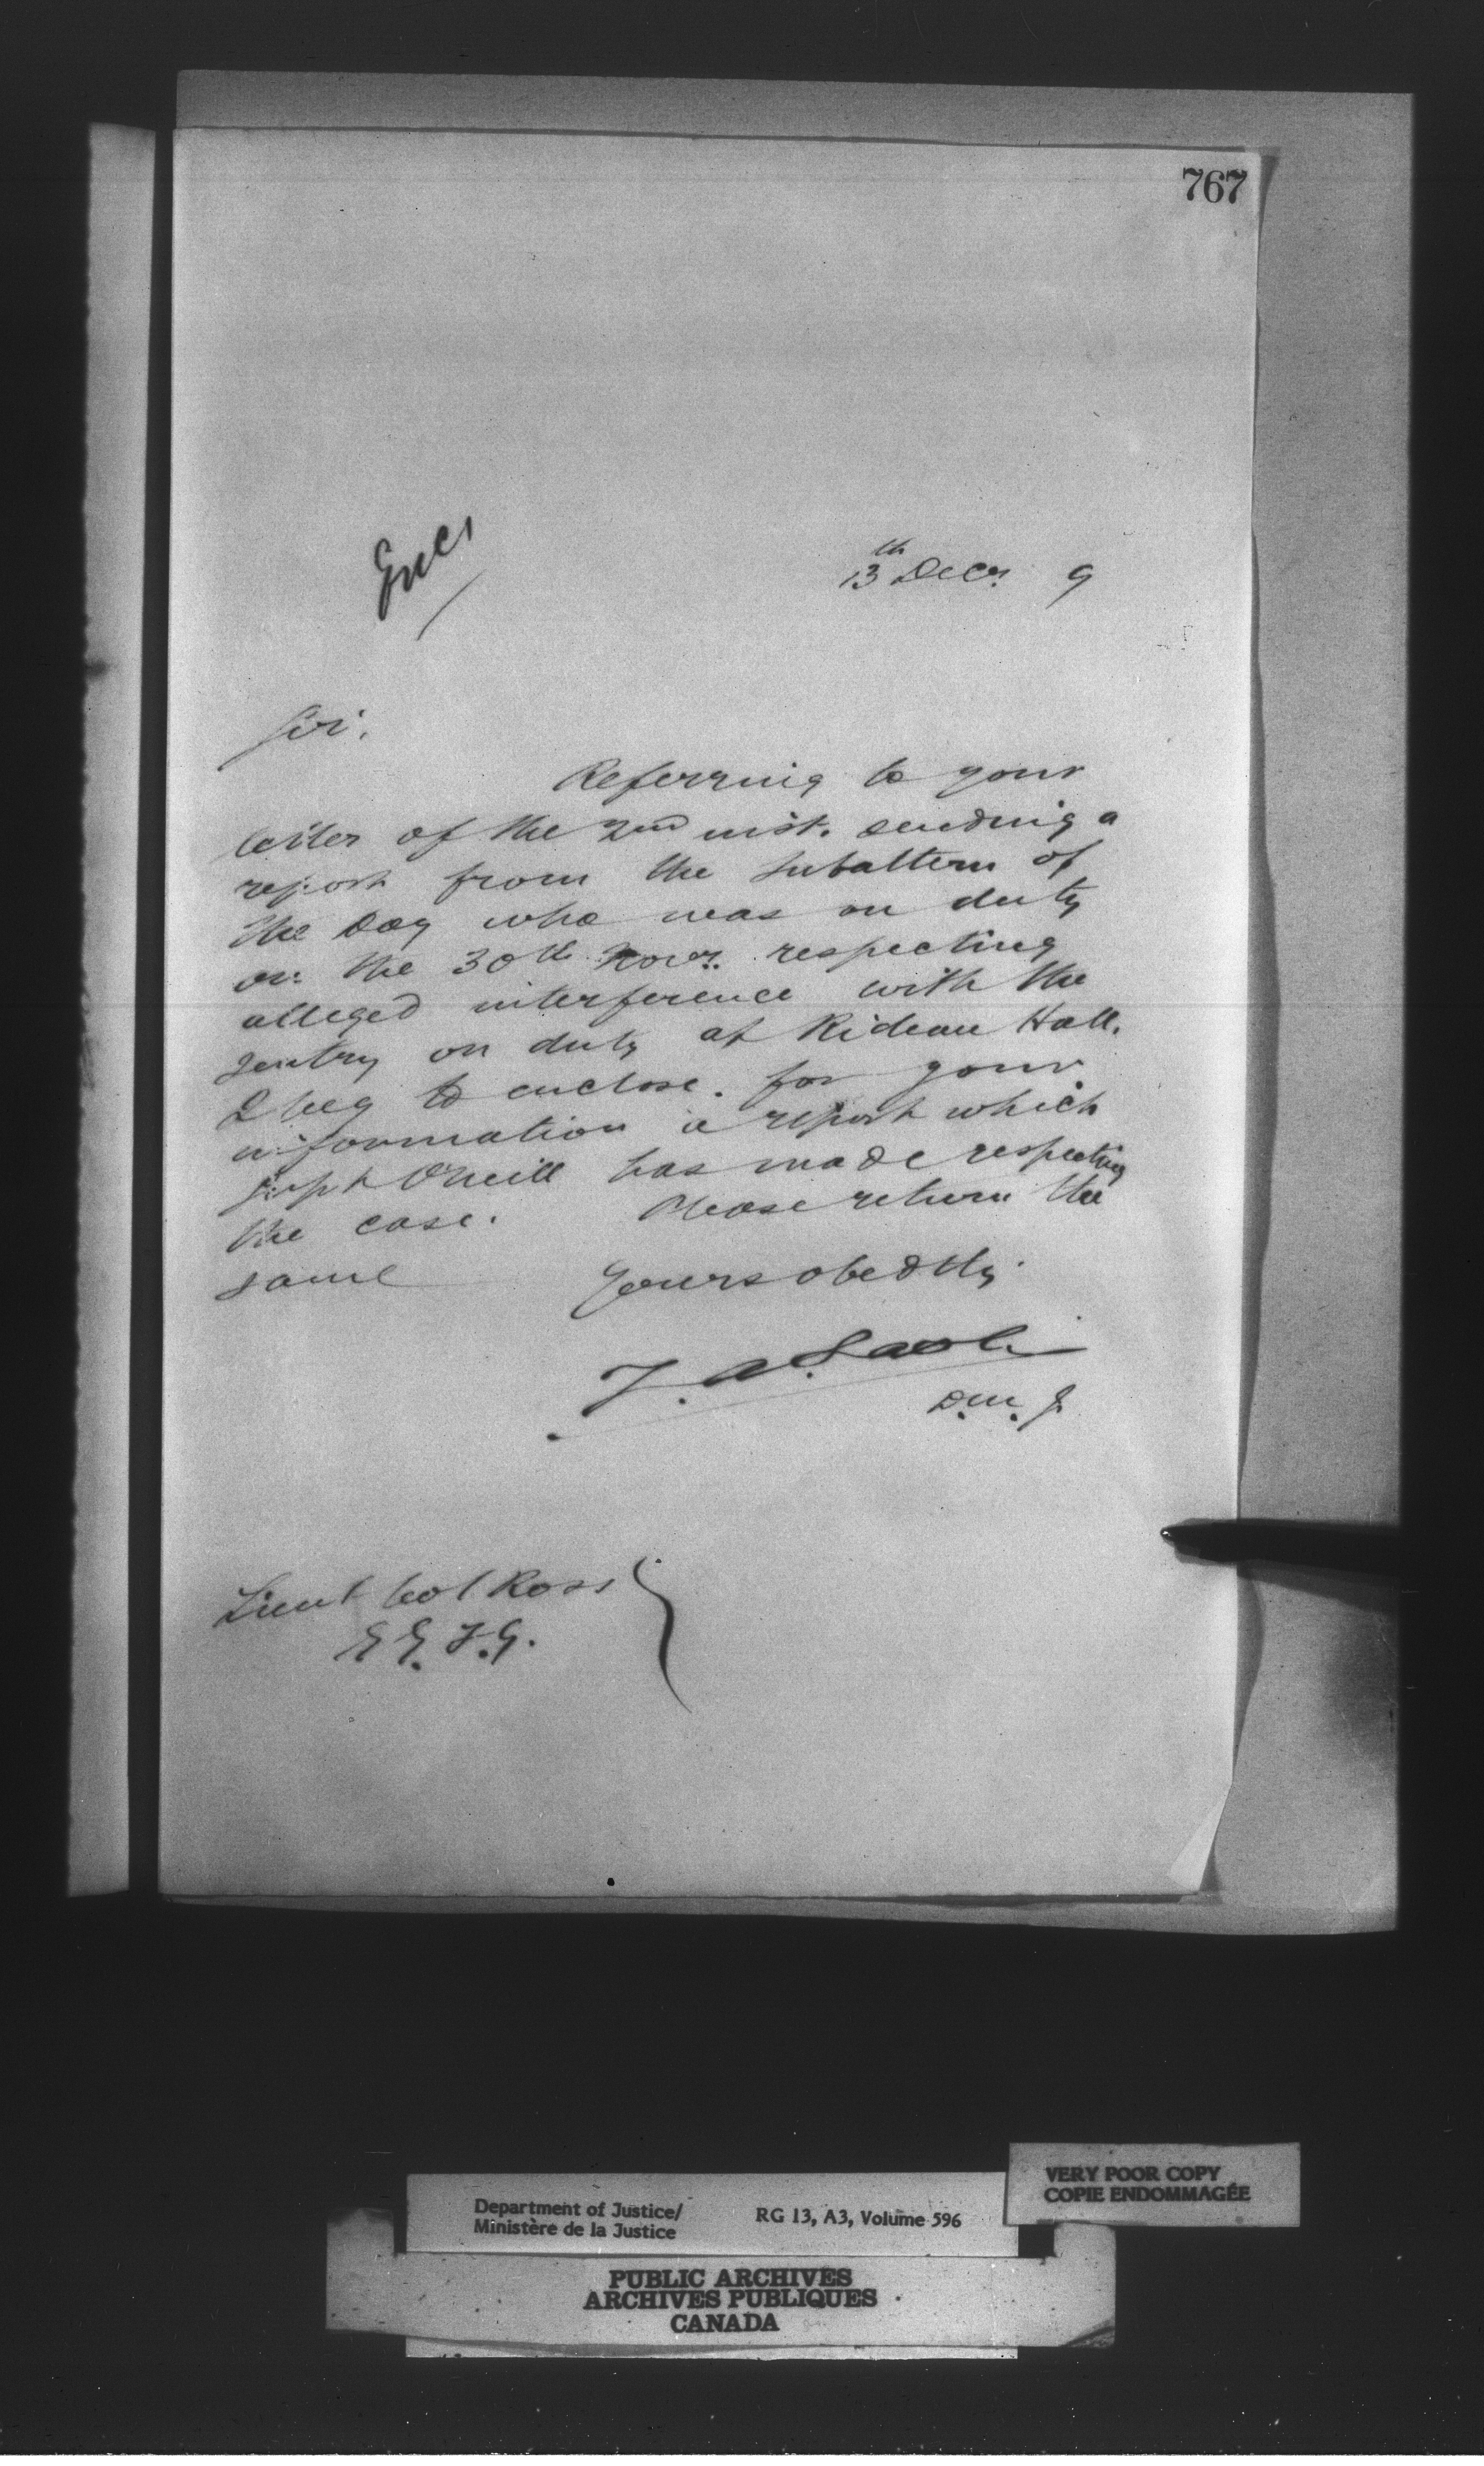 767
Encl
13th Decr. 9
Sir,
Referring to your
letter of the 2nd inst. sending a
report from the Subaltern of
the Day who was on duty
on the 30th Novr. respecting
alleged interference with the
sentry on duty at Rideau Hall.
I beg to enclose for your
information a report which
Supt O'Neill has made respecting
the case. Please return the
same
Yours obedtly
D.M.J.
Lieut Col Ross
G.G.F.G.
Department of Justice/
Ministère de la Justice
RG 13, A3, Volume 596
VERY POOR COPY
COPIE ENDOMMAGÉE
PUBLIC ARCHIVES
ARCHIVES PUBLIQUES
CANADA